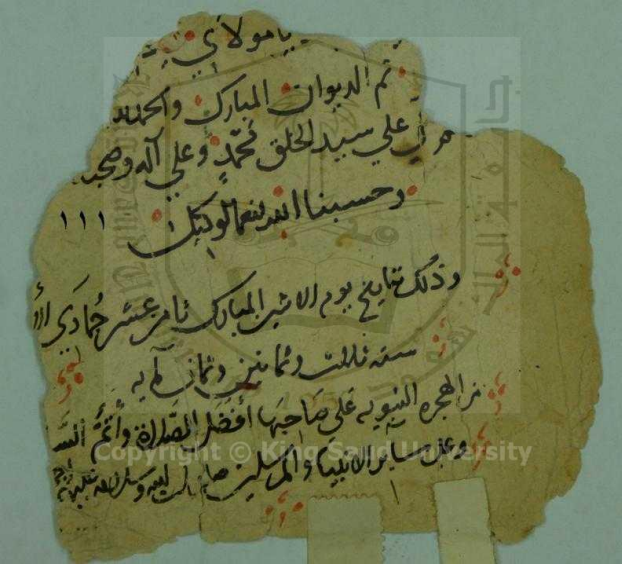 يا مولاي
تم الديوان المبارك والحمد لله
على سيد الخلق محمد وعلى آله وصحبه
وحسبنا الله ونعم الوكيل
١١١
وذلك بتاريخ يوم الاثنين المبارك ثامن عشر جمادى
سنة ثلاث وثمانين وثمانمايه
من الهجره النبويه على صاحبها أفضل الصلاة وأتم
وعلى ساير الأنبياء والمرسلين
Copyright © King Saud University